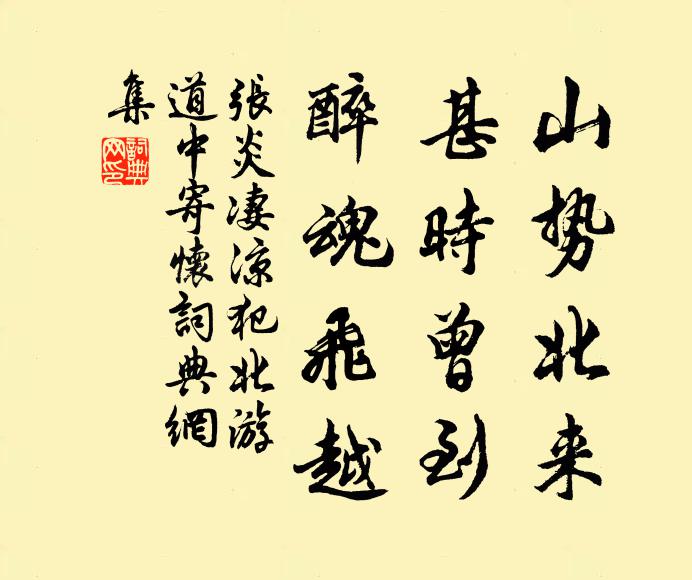 山势北来
甚時曾到
醉魂飛越
張炎凄涼犯北游
道中寄懷詞典網
集
詞典网印